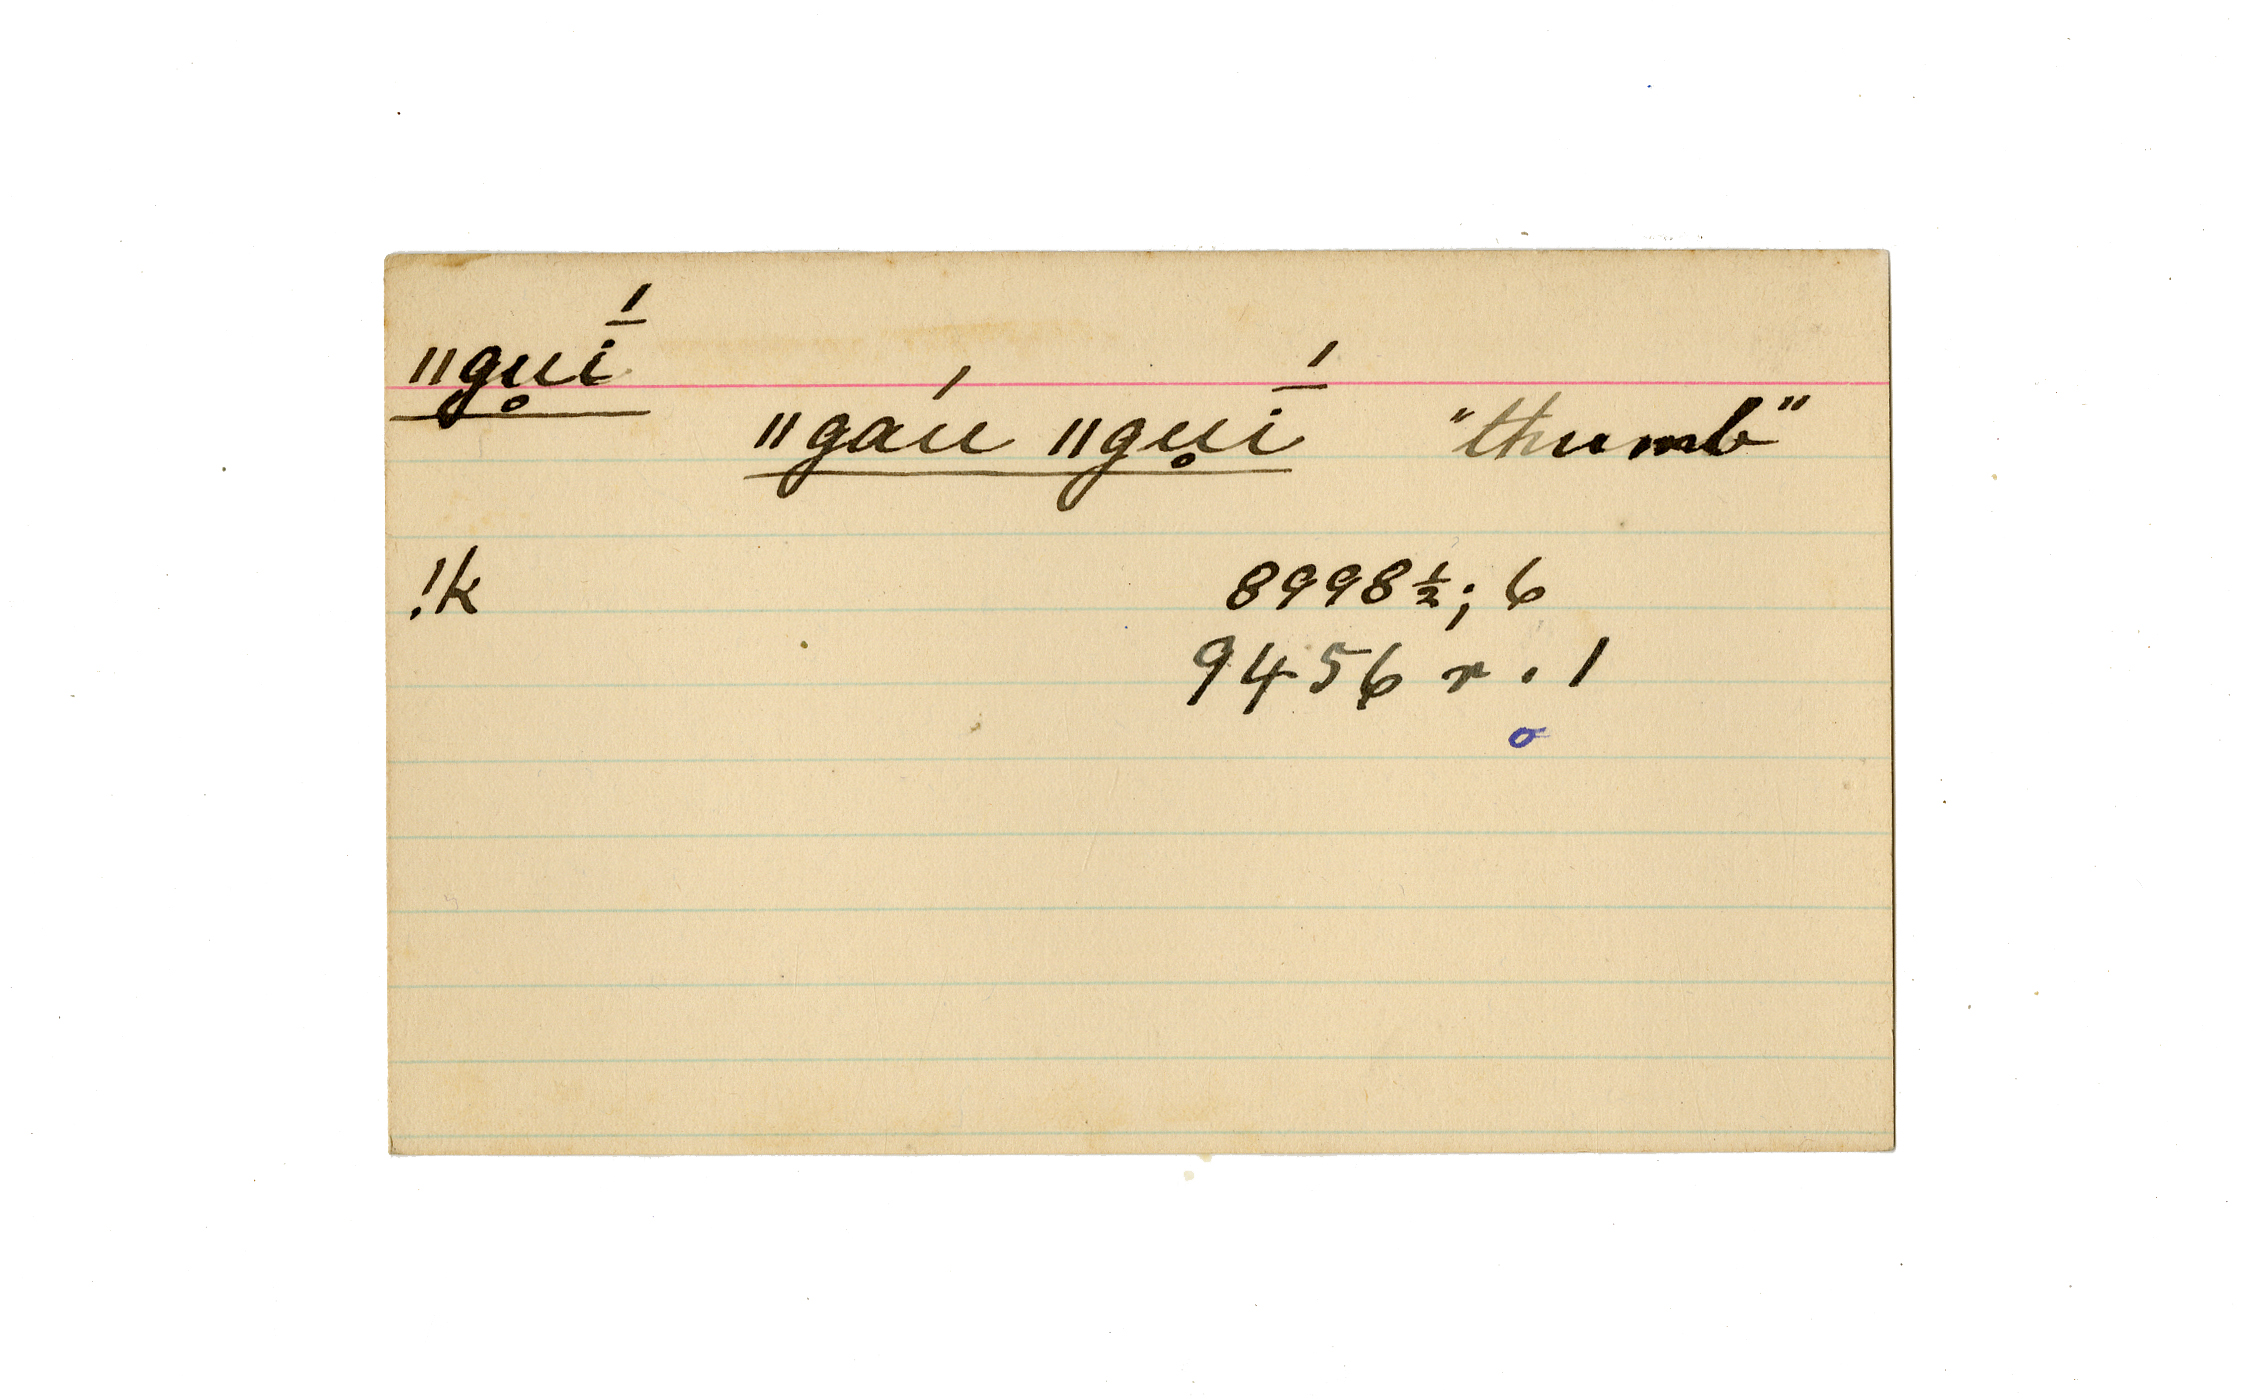 ǁgu̥ī́
ǁgáu ǁgu̥ī́ "thumb"
!k 8998½; 6
9456 r. 1
o